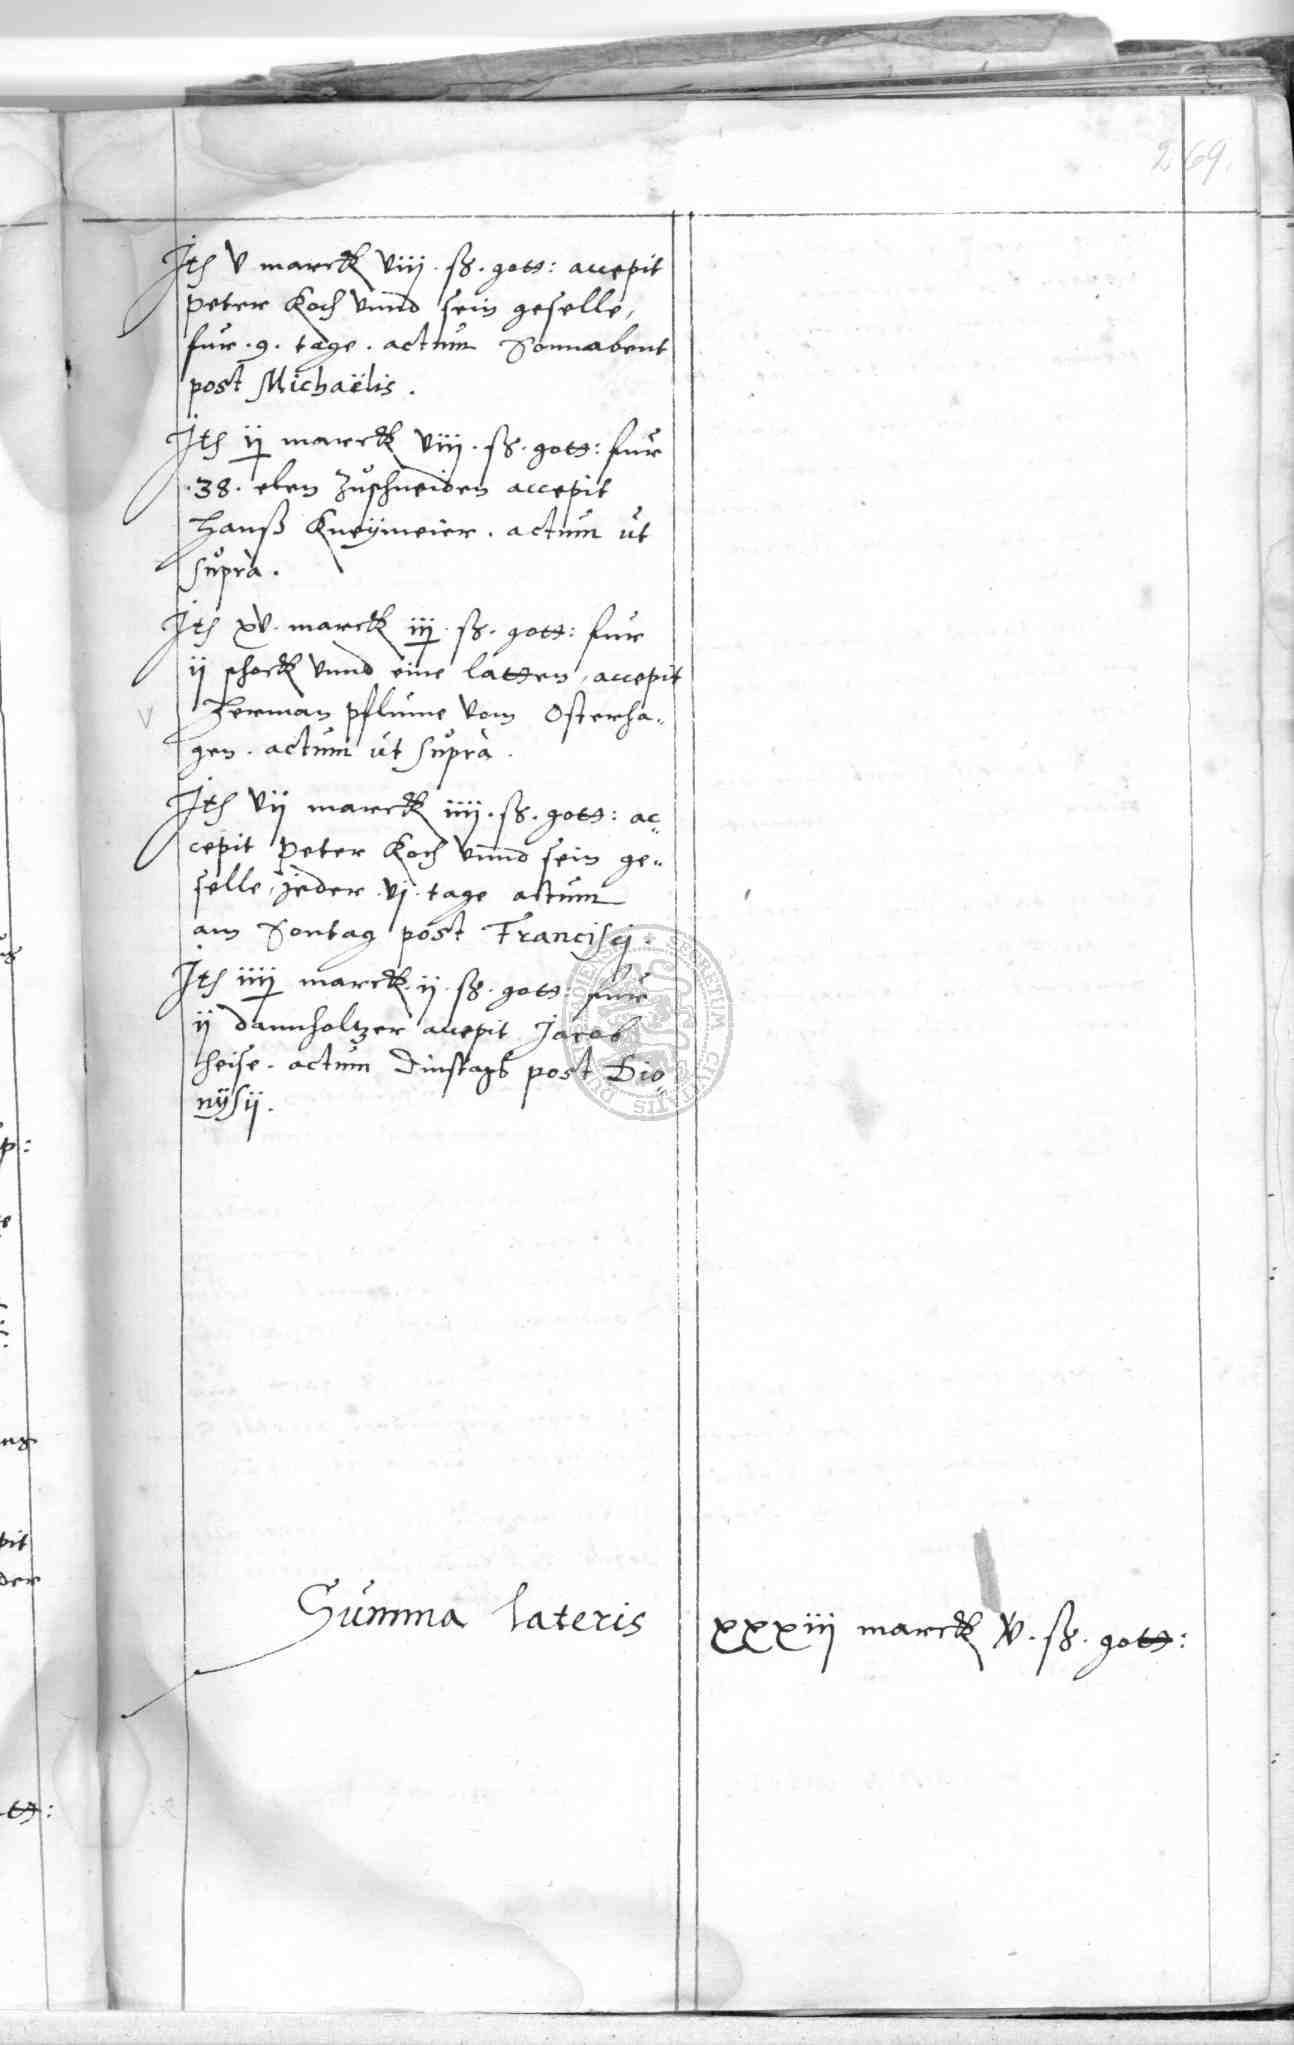 269.
Jtem v marck viii. ß. gott: accepit
peter Koch vnnd sein geselle,
fur .9. tage. actum Sonnabent
post Michaëlis.
Jtem ij marck viii. ß. gott: fur
.38. elen zuschneiden accepit
Hanß Kneÿmeier. actum ut
suprà.
Jtem xv. marck iij. ß. gott: fur
ii schock vnnd eine latten, accepit
Herman pflume vom Osterha„
gen. actum ut suprà.
Jtem vii marck iiii. ß. gott: ac„
cepit peter Koch vnnd sein ge„
selle, jeder .vj. tage actum
am Sontag post Francisci.
Jtem iiij marck. ii. ß. gott: fur
ij dannholtzer accepit Jacob
heise. actum Dinstags post Dio„
nÿsij.
Summa lateris xxxiij marck v. ß. gott:
SECRETUM CIVITATIS